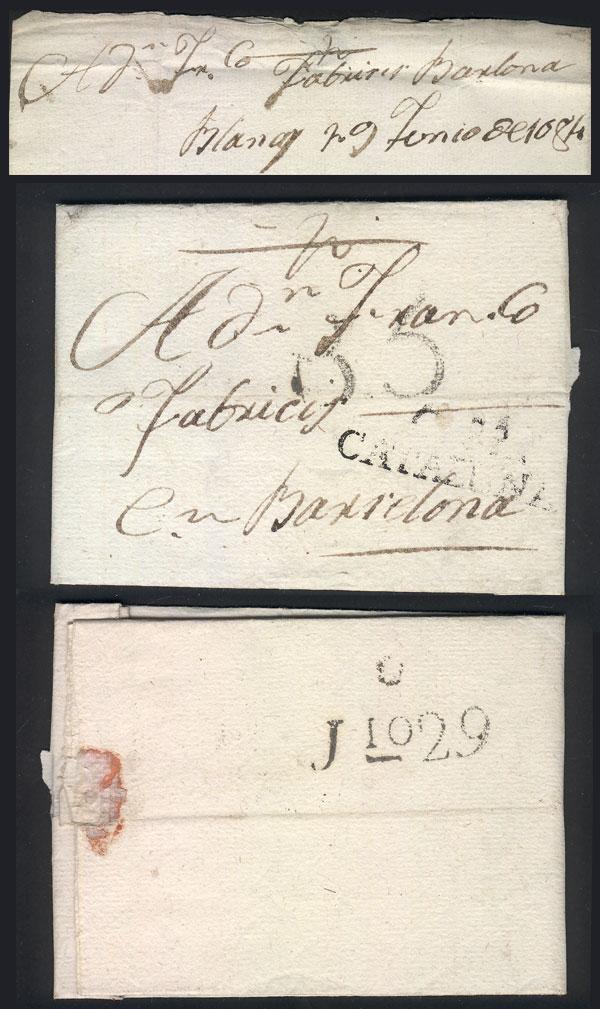 A Dn. Fr.co Fabricis Barlona
Blanes 29 Junio de 1084
A Dn. Franco
Fabricis
en Barcelona
CATALUÑA
J 10 29